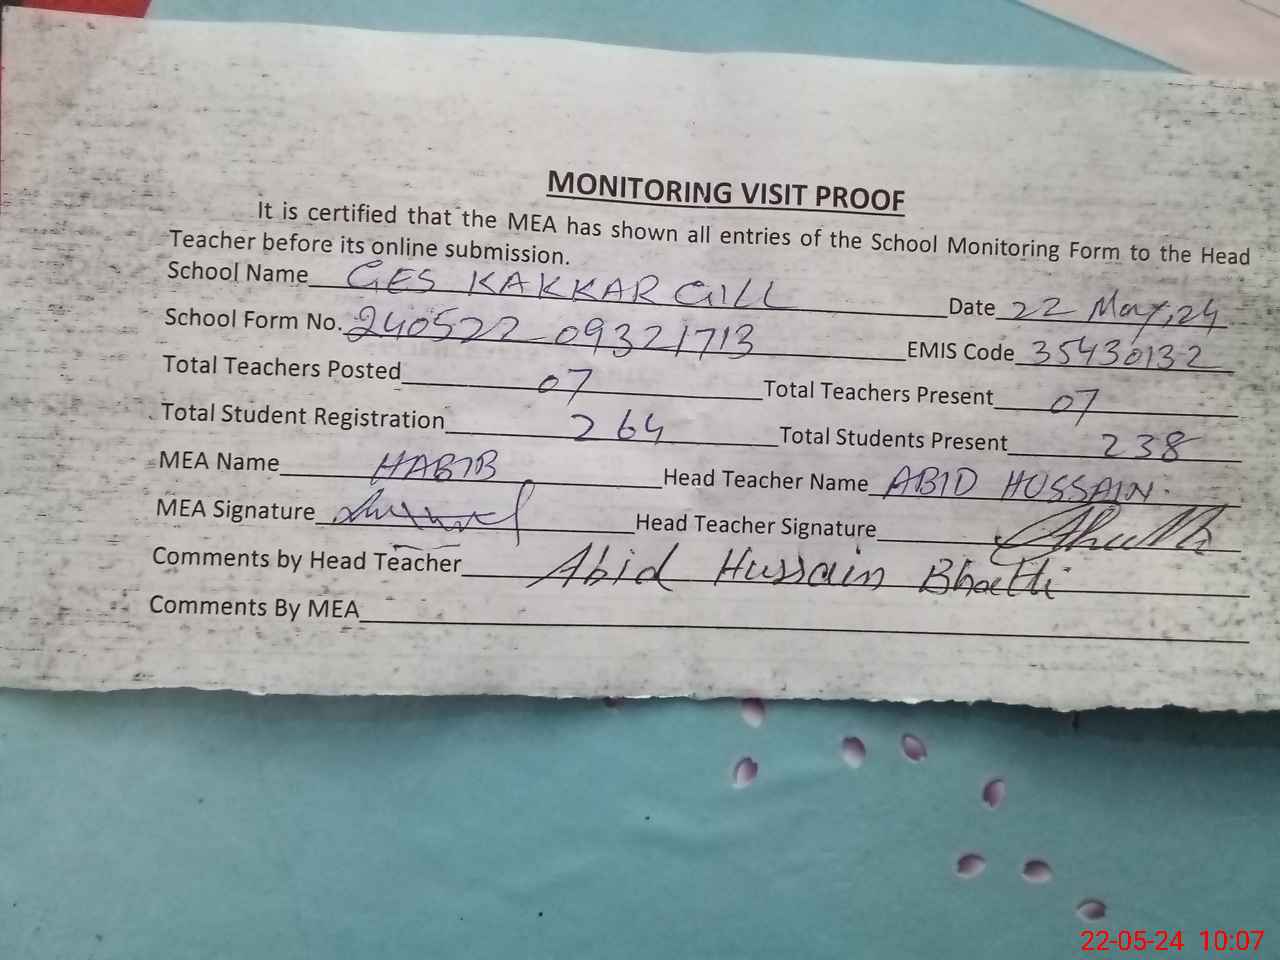 MONITORING VISIT PROOF
It is certified that the MEA has shown all entries of the School Monitoring Form to the Head
Teacher before its online submission.
School Name GES KAKKAR GILL Date 22 May, 24
School Form No. 240522 09321713 EMIS Code 35430132
Total Teachers Posted 07 Total Teachers Present 07
Total Student Registration 264 Total Students Present 238
MEA Name HABIB Head Teacher Name ABID HUSSAIN.
MEA Signature Head Teacher Signature
Comments by Head Teacher Abid Hussain Bhatti
Comments By MEA
22-05-24 10:07